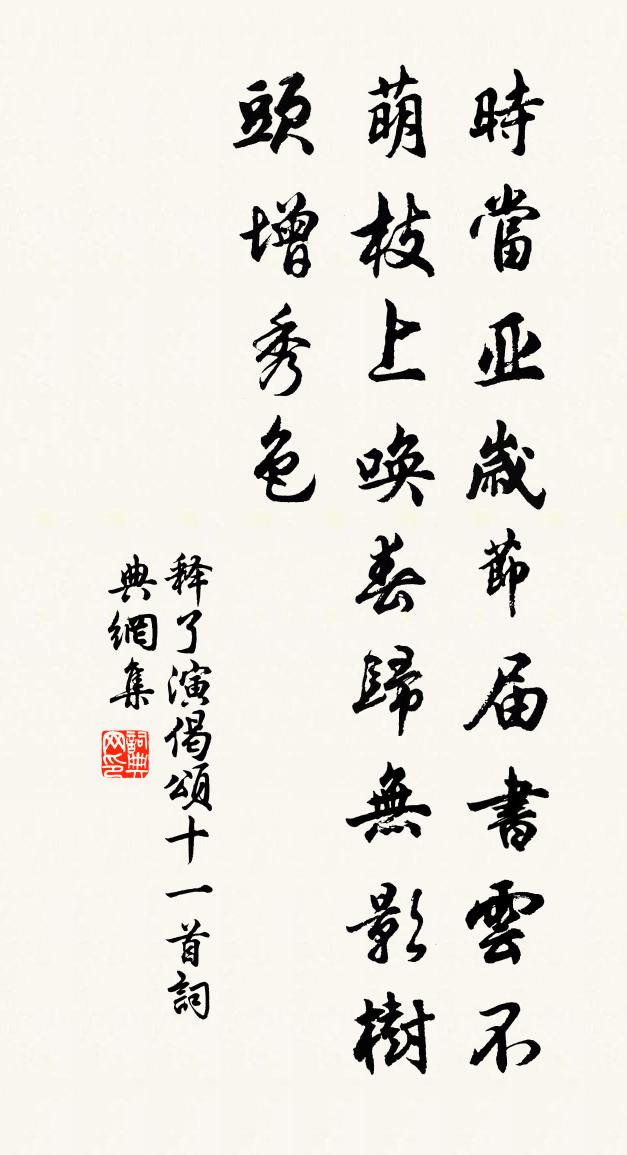 時當亚歲節届書雲不
萌枝上喚春歸無影樹
頭增秀色
释了演偈頌十一首詞
典網集
詞典网印